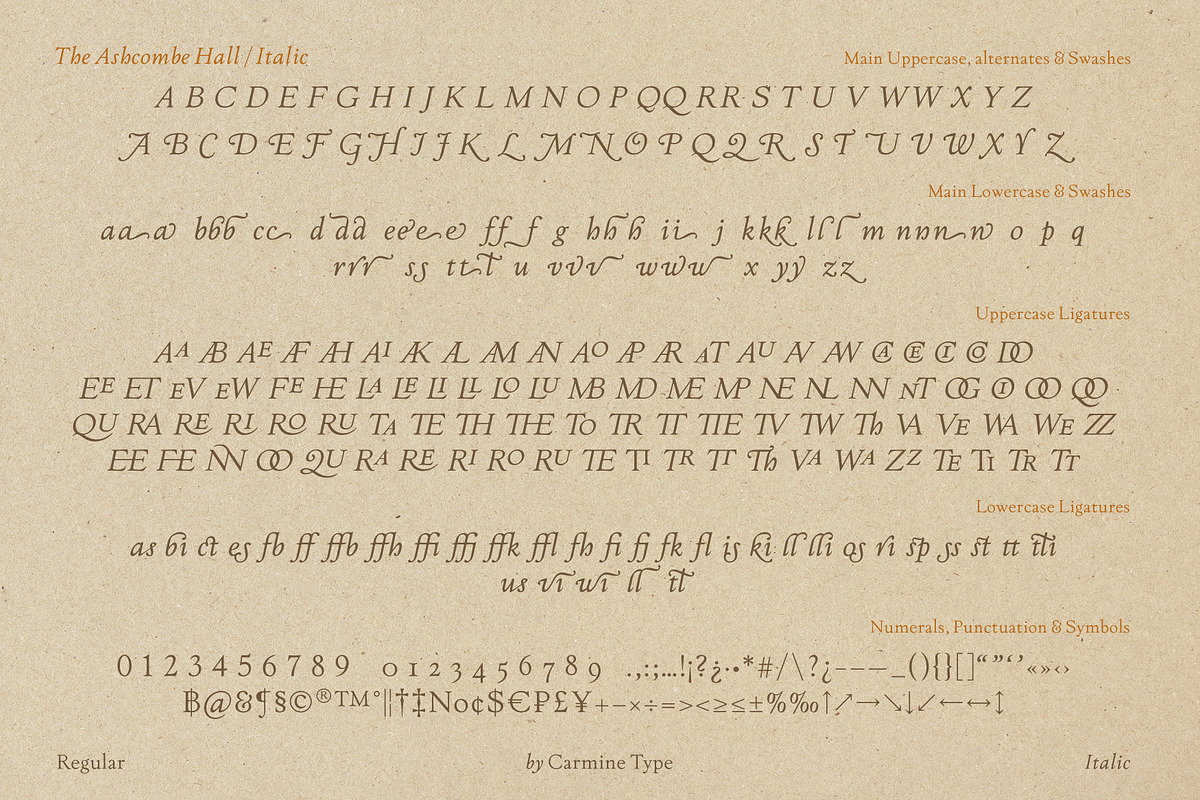 The Ashcombe Hall / Italic
Main Uppercase, alternates & Swashes
A B C D E F G H I J K L M N O P Q Q R R S T U V W W X Y Z
A B C D E F G H I J K L M N O P Q Q R S T U V W X Y Z
Main Lowercase & Swashes
a a a b b b c c d d d e e e e f f f g h h h i i j k k k l l l m n n n n o p q
r r r s s t t t u v v v w w w x y y z z
Uppercase Ligatures
AA AB AE AF AH AI AK AL AM AN AO AP AR AT AU AV AW CA CE CI CO DO
EE ET EV EW FE HE LA LE LI LL LO LU MB MD ME MP NE NL NN NT OG OI OO QO
QU RA RE RI RO RU TA TE TH THE TO TR TT TTE TV TW Th VA VE WA WE ZZ
EE FE NN OO QU RA RE RI RO RU TE TI TR TT Th VA WA ZZ TE TI TR TT
Lowercase Ligatures
as bi ct es fb ff ffb ffh ffi ffj ffk ffl fh fi fj fk fl is ki ll lli os ri sp ss st tt tti
us vi wi ll tt
Numerals, Punctuation & Symbols
0 1 2 3 4 5 6 7 8 9 0 1 2 3 4 5 6 7 8 9 .,:;...!¡?¿·•*#/\?¿-–—_(){}[]“”‘’«»‹›
฿@&¶§©®™°|†‡No¢$€₽£¥+−×÷=><≥≤±%‰↑↗→↘↓↙←↔↕
Regular
by Carmine Type
Italic